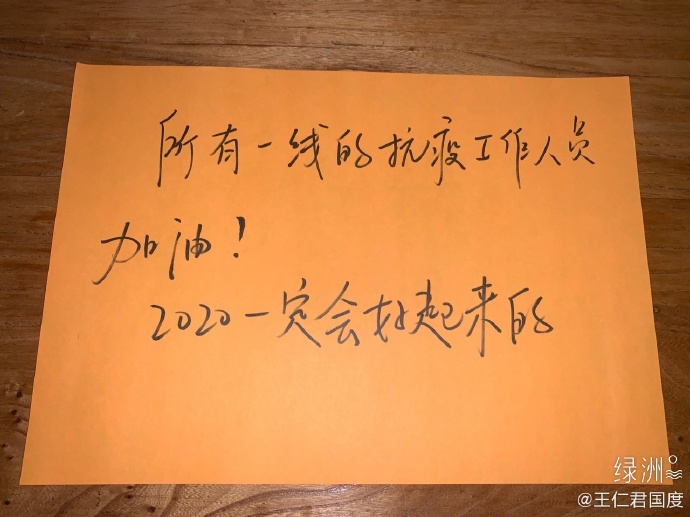 所有一线的抗疫工作人员
加油！
2020一定会好起来的
绿洲
@王仁君国度